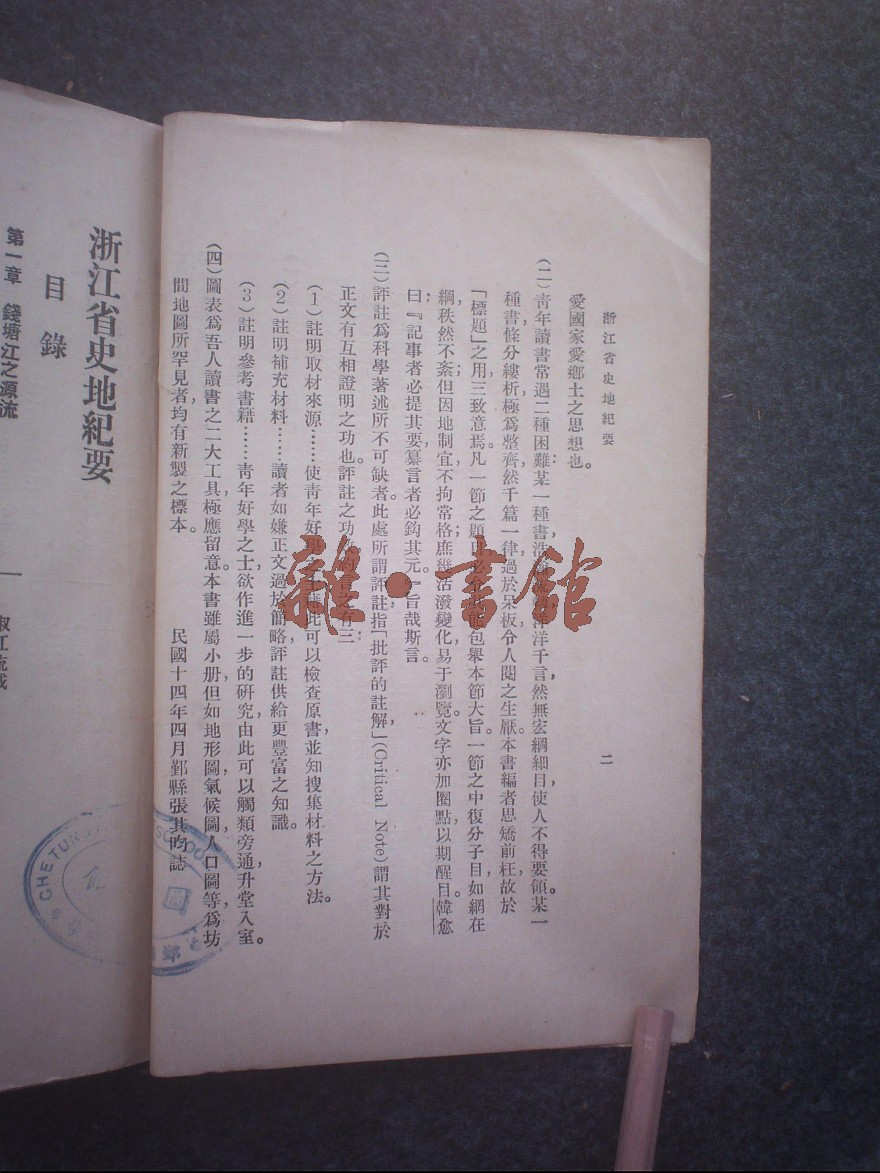 浙江省史地紀要
二
愛國家愛鄉土之思想也。
(二)靑年讀書常遇二種困難：某一種書浩洋洋千言，然無宏綱細目，使人不得要領。某一
種書，條分縷析，極爲整齊，然千篇一律，過於呆板，令人閱之生厭。本書編者思矯前枉，故於
「標題」之用，三致意焉。凡一節之題目必包舉本節大旨。一節之中，復分子目，如網在
綱，秩然不紊；但因地制宜，不拘常格，庶幾活潑變化，易于瀏覽。文字亦加圈點，以期醒目。韓愈
曰：『記事者必提其要，纂言者必鈎其元。』旨哉斯言。
(三)評註爲科學著述所不可缺者。此處所謂評註，指「批評的註解」(Critical Note)謂其對於
正文有互相證明之功也。評註之功有三：
(1)註明取材來源……使靑年好此可以檢查原書，並知搜集材料之方法。
(2)註明補充材料……讀者如嫌正文過於簡略，評註供給更豐富之知識。
(3)註明參考書籍……靑年好學之士，欲作進一步的研究，由此可以觸類旁通，升堂入室。
(四)圖表爲吾人讀書之二大工具，極應留意。本書雖屬小册，但如地形圖，氣候圖，人口圖等，爲坊
間地圖所罕見者，均有新製之標本。
民國十四年四月鄞縣張其昀誌
浙江省史地紀要
目錄
第一章 錢塘江之源流
一
雜·書館
CHETUNG
SCHOOL
圖
鄞